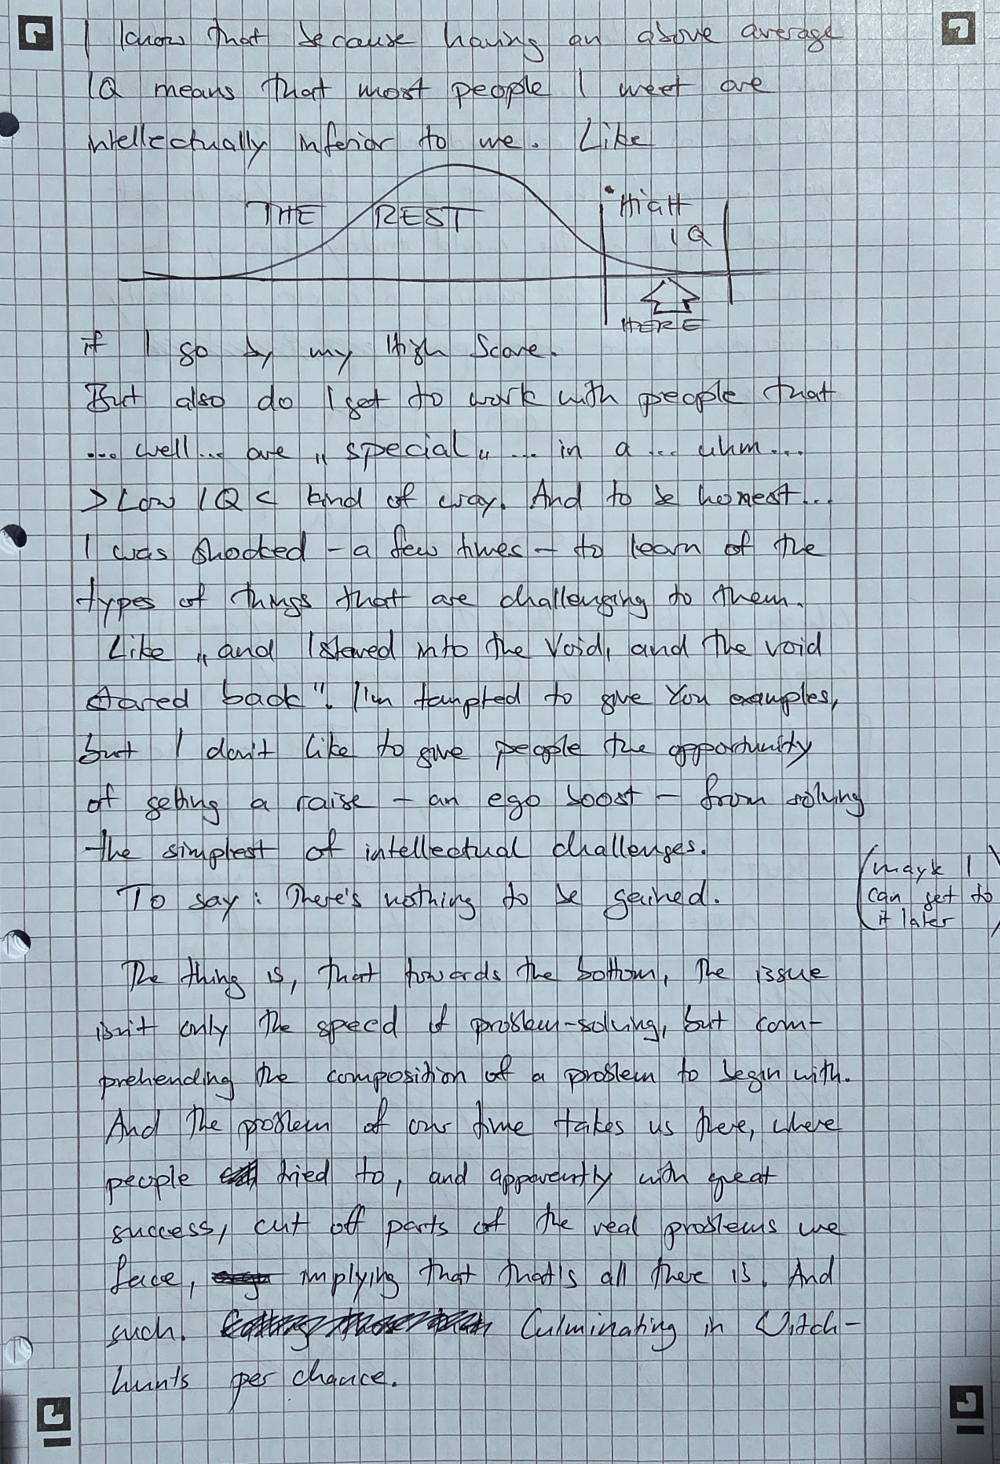 I know that because having an above average
IQ means that most people I meet are
intellectually inferior to me. Like
THE REST
High
IQ
HERE
if I go by my High Score.
But also do I get to work with people that
... well... are „special„ ... in a ... uhm...
>Low IQ< kind of way. And to be honest...
I was shocked - a few times - to learn of the
types of things that are challenging to them.
Like „and I stared into the Void, and the void
stared back". I'm tampted to give You examples,
but I don't like to give people the opportunity
of getting a raise - an ego boost - from solving
the simplest of intellectual challenges.
To say: There's nothing to be gained.
(maybe I
can get to
it later)
The thing is, that towards the bottom, the issue
isn't only the speed of problem-solving, but com-
prehending the composition of a problem to begin with.
And the problem of our time takes us there, where
people tried to, and apparently with great
success, cut off parts of the real problems we
face, implying that that's all there is. And
such. Culminating in Witch-
hunts per chance.